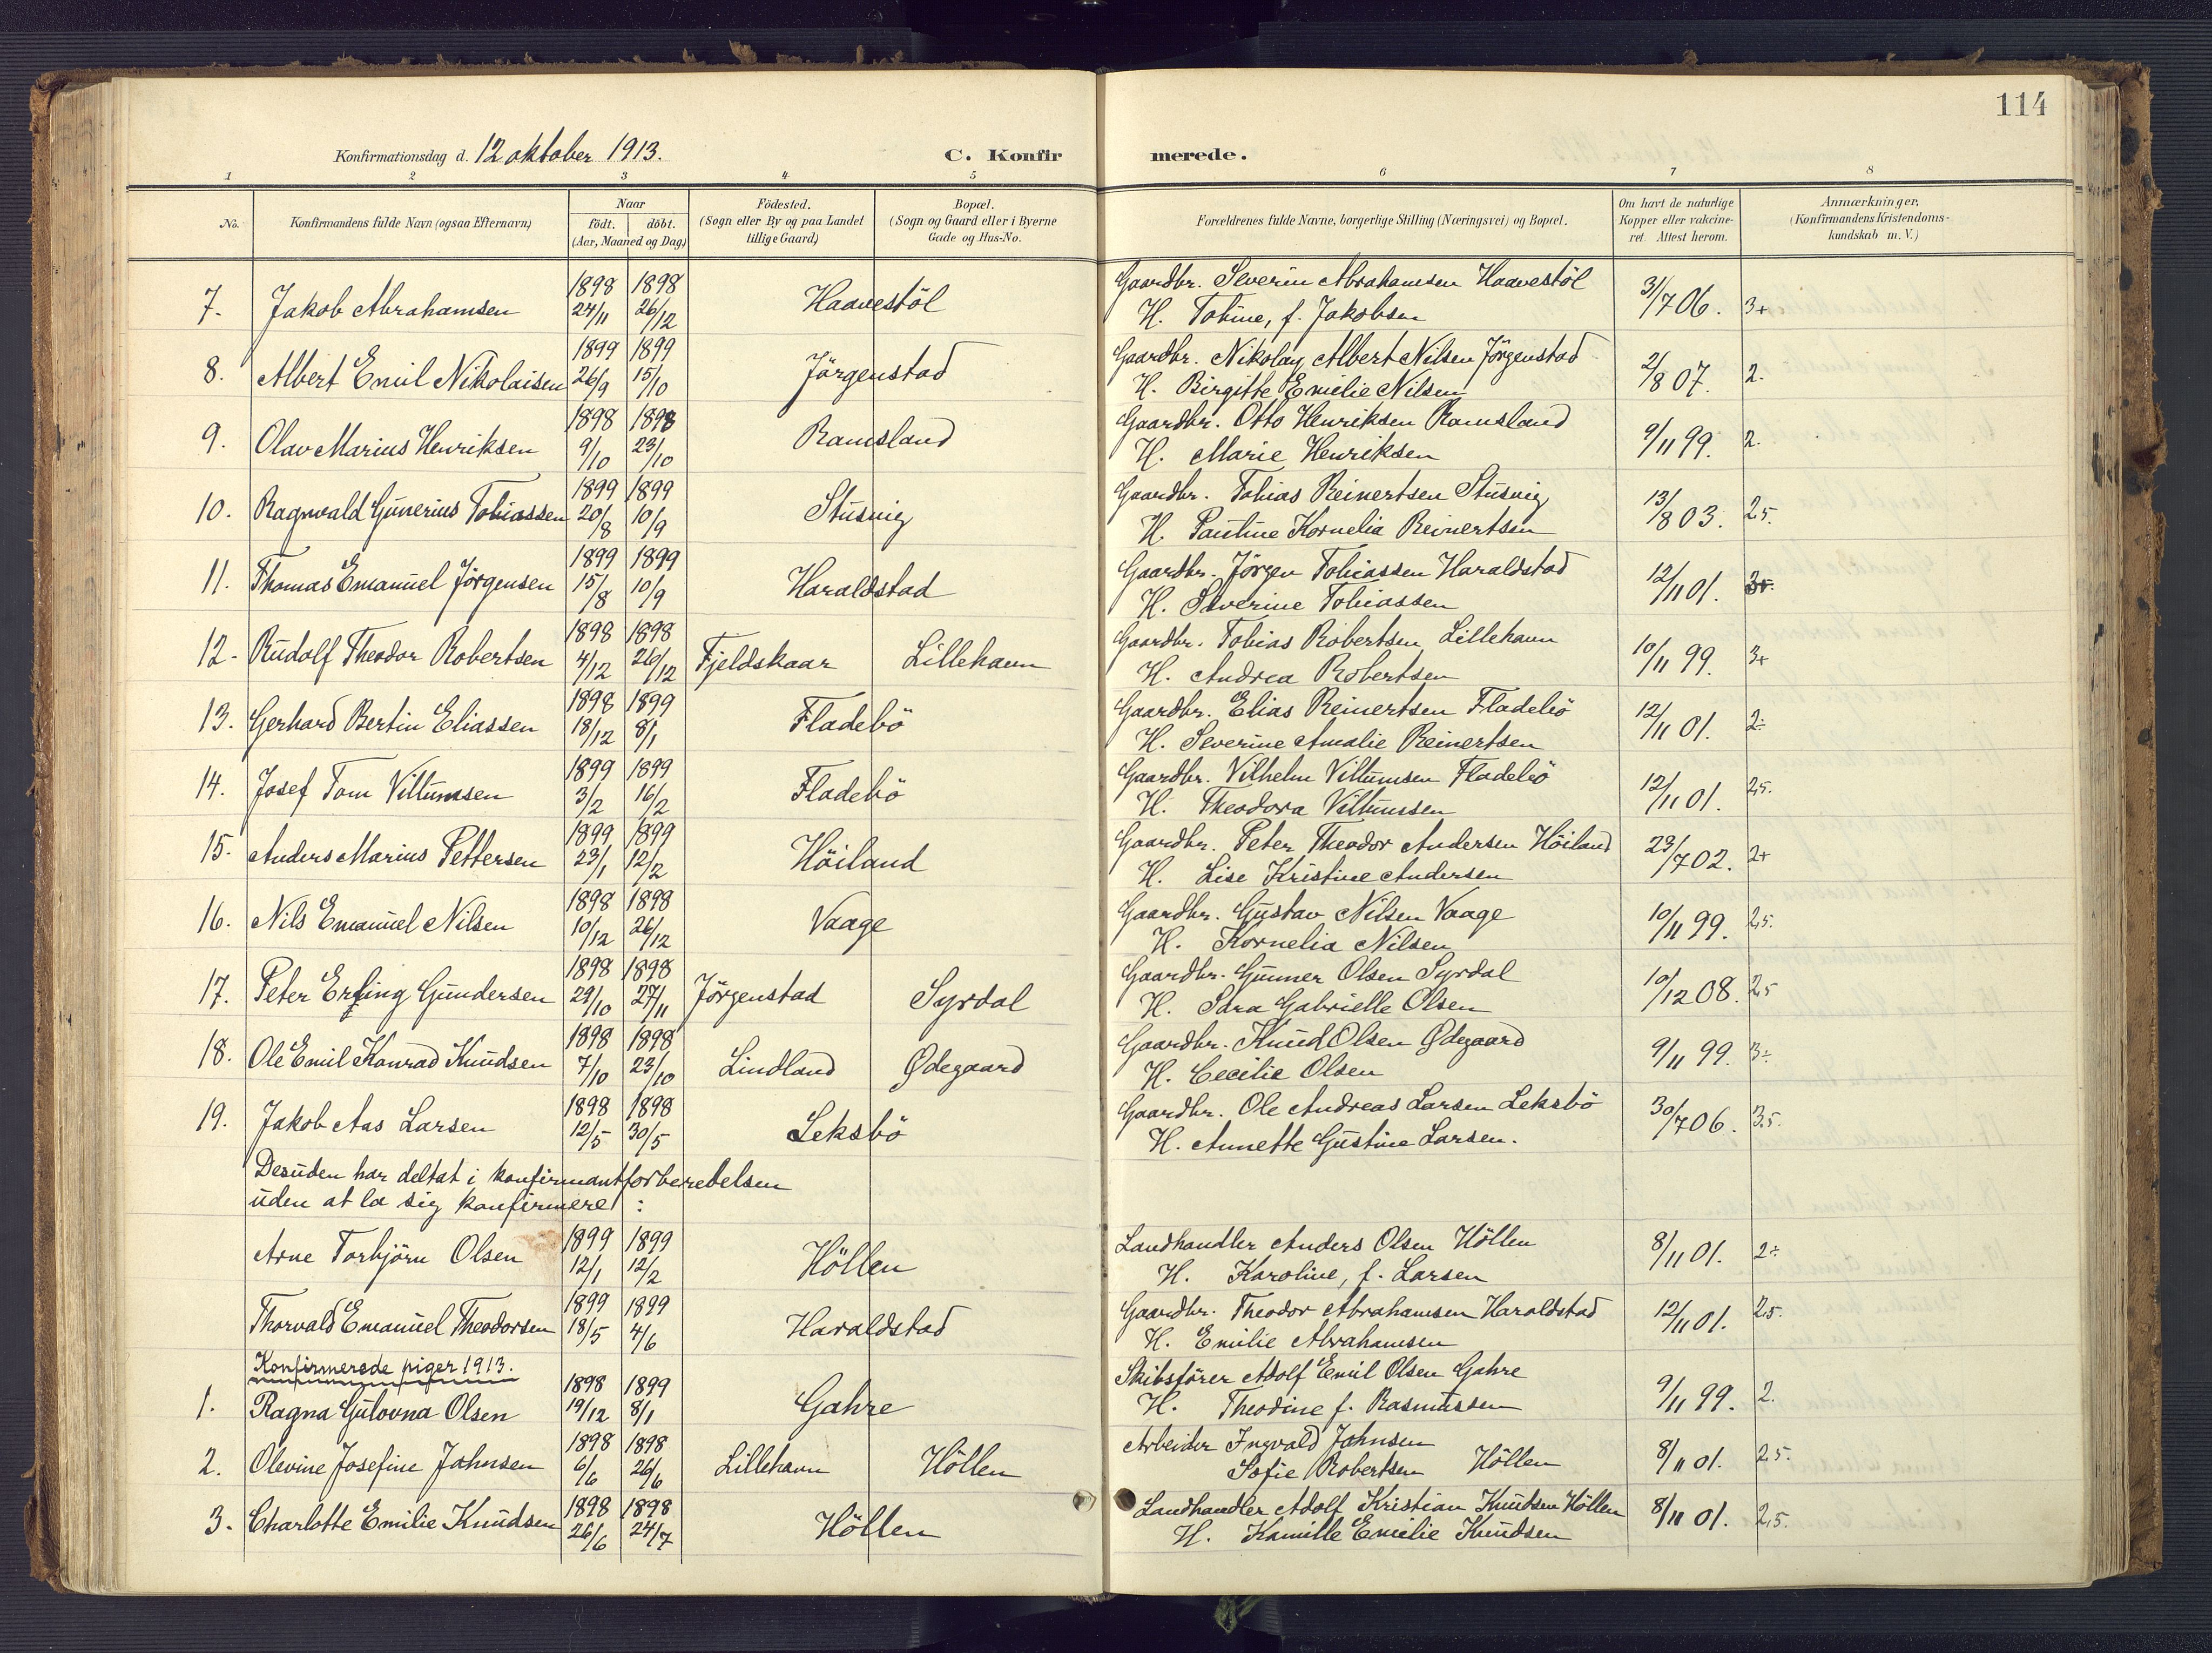 114
Konfirmationsdag d. 12 oktober 1913. C. Konfirmerede.
1 2 3 4 5 6 7 8
No. Konfirmandens fulde Navn (ogsaa Efternavn) Naar födt. döbt. (Aar, Maaned og Dag) Födested. (Sogn eller By og paa Landet tillige Gaard) Bopæl. (Sogn og Gaard eller i Byerne Gade og Hus-No. Forældrenes fulde Navne, borgerlige Stilling (Næringsvei) og Bopæl. Om havt de naturlige Kopper eller vakcineret. Attest herom. Anmærkninger. (Konfirmandens Kristendomskundskab m. V.)
7. Jakob Abrahamsen 1898 24/11 1898 26/12 Haavestöl Gaardbr. Severin Abrahamsen Haavestöl 31/7 06. 3+
H. Tobine, f. Jakobsen
8. Albert Emil Nikolaisen 1899 26/9 1899 15/10 Jörgenstad Gaardbr. Nikolay Albert Nilsen Jörgenstad 2/8 07. 2.
H. Birgitte Emelie Nilsen
9. Olav Marius Henriksen 1898 9/10 1898 23/10 Ramsland Gaardbr. Otto Henriksen Ramsland 9/11 99. 2.
H. Marie Henriksen
10. Ragnvald Gunerius Tobiassen 1899 20/8 1899 10/9 Stusvig Gaardbr. Tobias Reinertsen Stusvig 13/8 03. 2,5.
H. Pauline Kornelia Reinertsen
11. Thomas Emanuel Jörgensen 1899 15/8 1899 10/9 Haraldstad Gaardbr. Jörgen Tobiassen Haraldstad 12/11 01.
H. Severine Tobiassen
12. Rudolf Theodor Robertsen 1898 4/12 1898 26/12 Fjeldskaar Lillehavn Gaardbr. Tobias Robertsen Lillehavn 10/11 99. 3+
H. Andrea Robertsen
13. Gerhard Bertin Eliassen 1898 18/12 1899 8/1 Fladebö Gaardbr. Elias Reinertsen Fladebö 12/11 01. 2÷
H. Severine Amalie Reinertsen
14. Josef Tom Viltumsen 1899 3/2 1899 16/2 Fladebö Gaardbr. Vilhelm Viltumsen Fladebö 12/11 01. 2,5.
H. Theodora Viltumsen
15. Anders Marius Pettersen 1899 23/1 1899 12/2 Höiland Gaardbr. Peter Theodor Andersen Höiland 23/7 02. 2+
H. Lise Kristine Andersen
16. Nils Emanuel Nilsen 1898 10/12 1898 26/12 Vaage Gaardbr. Gustav Nilsen Vaage 10/11 99. 2,5.
H. Kornelia Nilsen
17. Peter Erling Gundersen 1898 29/10 1898 27/11 Jörgenstad Syrdal Gaardbr. Gunner Olsen Syrdal 10/12 08. 2,5
H. Sara Gabrielle Olsen
18. Ole Emil Konrad Knudsen 1898 7/10 1898 23/10 Lindland Ødegaard Gaardbr. Knud Olsen Ødegaard 9/11 99. 3÷
H. Cecilie Olsen
19. Jakob Aas Larsen 1898 12/5 1898 30/5 Leksbö Gaardbr. Ole Andreas Larsen Leksbö 30/7 06. 3,5.
H. Annette Gustine Larsen.
Desuden har deltat i konfirmantforberedelsen
uden at la sig konfirmere :
Arne Torbjörn Olsen 1899 12/1 1899 12/2 Höllen Landhandler Anders Olsen Höllen 8/11 01. 2÷
H. Karoline, f. Larsen
Thorvald Emanuel Theodorsen 1899 18/5 1899 4/6 Haraldstad Gaardbr. Theodor Abrahamsen Haraldstad 12/11 01. 2,5.
H. Emilie Abrahamsen
Konfirmerede piger 1913.
1. Ragna Gulovna Olsen 1898 19/12 1899 8/1 Gahre Skibsförer Adolf Emil Olsen Gahre 9/11 99. 2.
H. Theodine f. Rasmussen
2. Olevine Josefine Jahnsen 1898 6/6 1898 26/6 Lillehavn Höllen Arbeider Ingvald Jahnsen 8/11 01. 2,5.
Sofie Robertsen Höllen
3. Charlotte Emilie Knudsen 1898 26/6 1898 24/7 Höllen Landhandler Adolf Kristian Knudsen Höllen 8/11 01. 2,5.
H. Kamille Emelie Knudsen